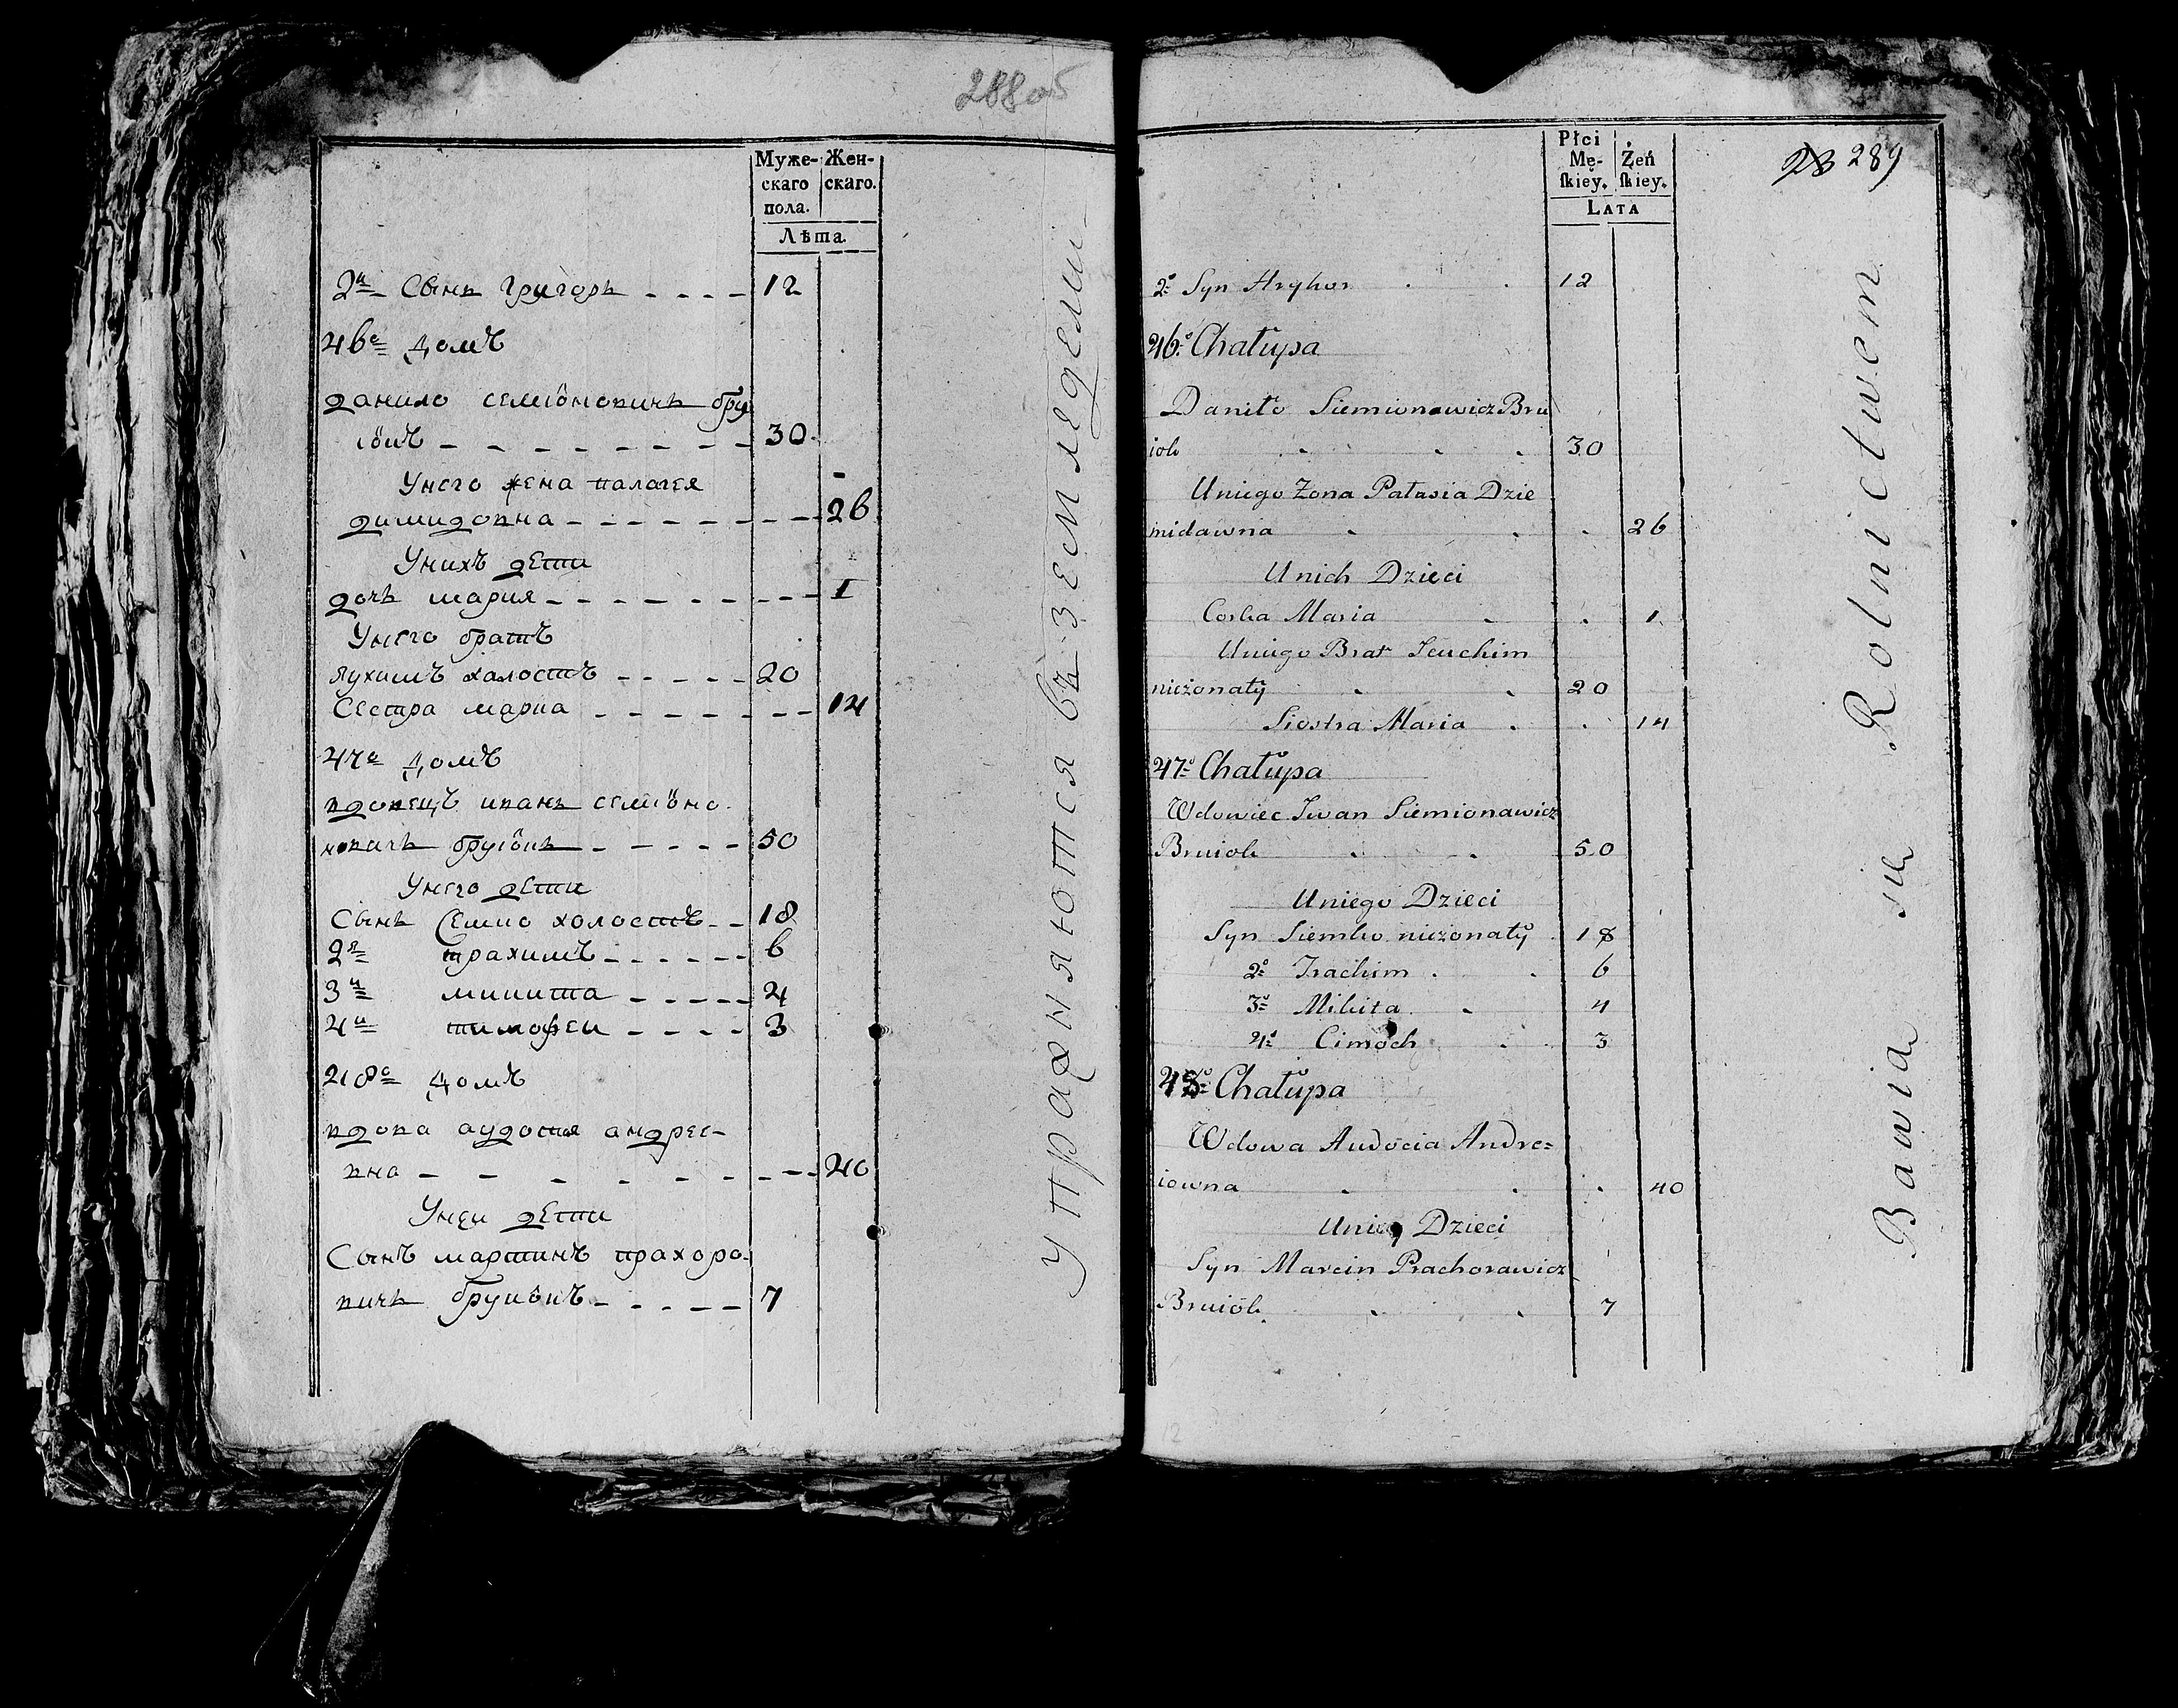 288об
Муже- Жен-
скаго скаго.
пола.
Лѣта.
2й Сынъ Григоръ 12
46е Домъ
данило семіоновичъ бру
іокъ 30
Унего жена палагея
димидовна 26
Унихъ дети
дочь мария 1
Унего братъ
яухимъ халостъ 20
Сестра мария 14
47е Домъ
вдовецъ иванъ семіоно
вичъ бруіокъ 50
Унего дети
Сынъ Семко холостъ 18
2й трахимъ 6
3й микита 4
4й тимофеи 3
48е Домъ
вдова аудотья андрее-
вна 40
Унеи дети
Сынъ мартинъ прахоро-
вичъ бруиокъ 7
упражняются въ земледели
28 289
Płci
Mę- Żeń
skiey. skiey.
LATA
2o Syn Hryhor 12
46o Chałupa
Daniło Siemionowicz Bru
iok 30
Uniego Żona Pałasia Dzie
midawna 26
Unich Dzieci
Corka Maria 1
Uniego Brat Jeuchim
nieżonaty 20
Siostra Maria 14
47o Chałupa
Wdowiec Iwan Siemionawicz
Bruiok 50
Uniego Dzieci
Syn Siemko nieżonaty 18
2o Trachim 6
3o Mikita 4
4o Cimoch 3
48o Chałupa
Wdowa Audocia Andre=
iowna 40
Uniey Dzieci
Syn Marcin Prachorawicz
Bruiok 7
Bawia sie Rolnictwem
12